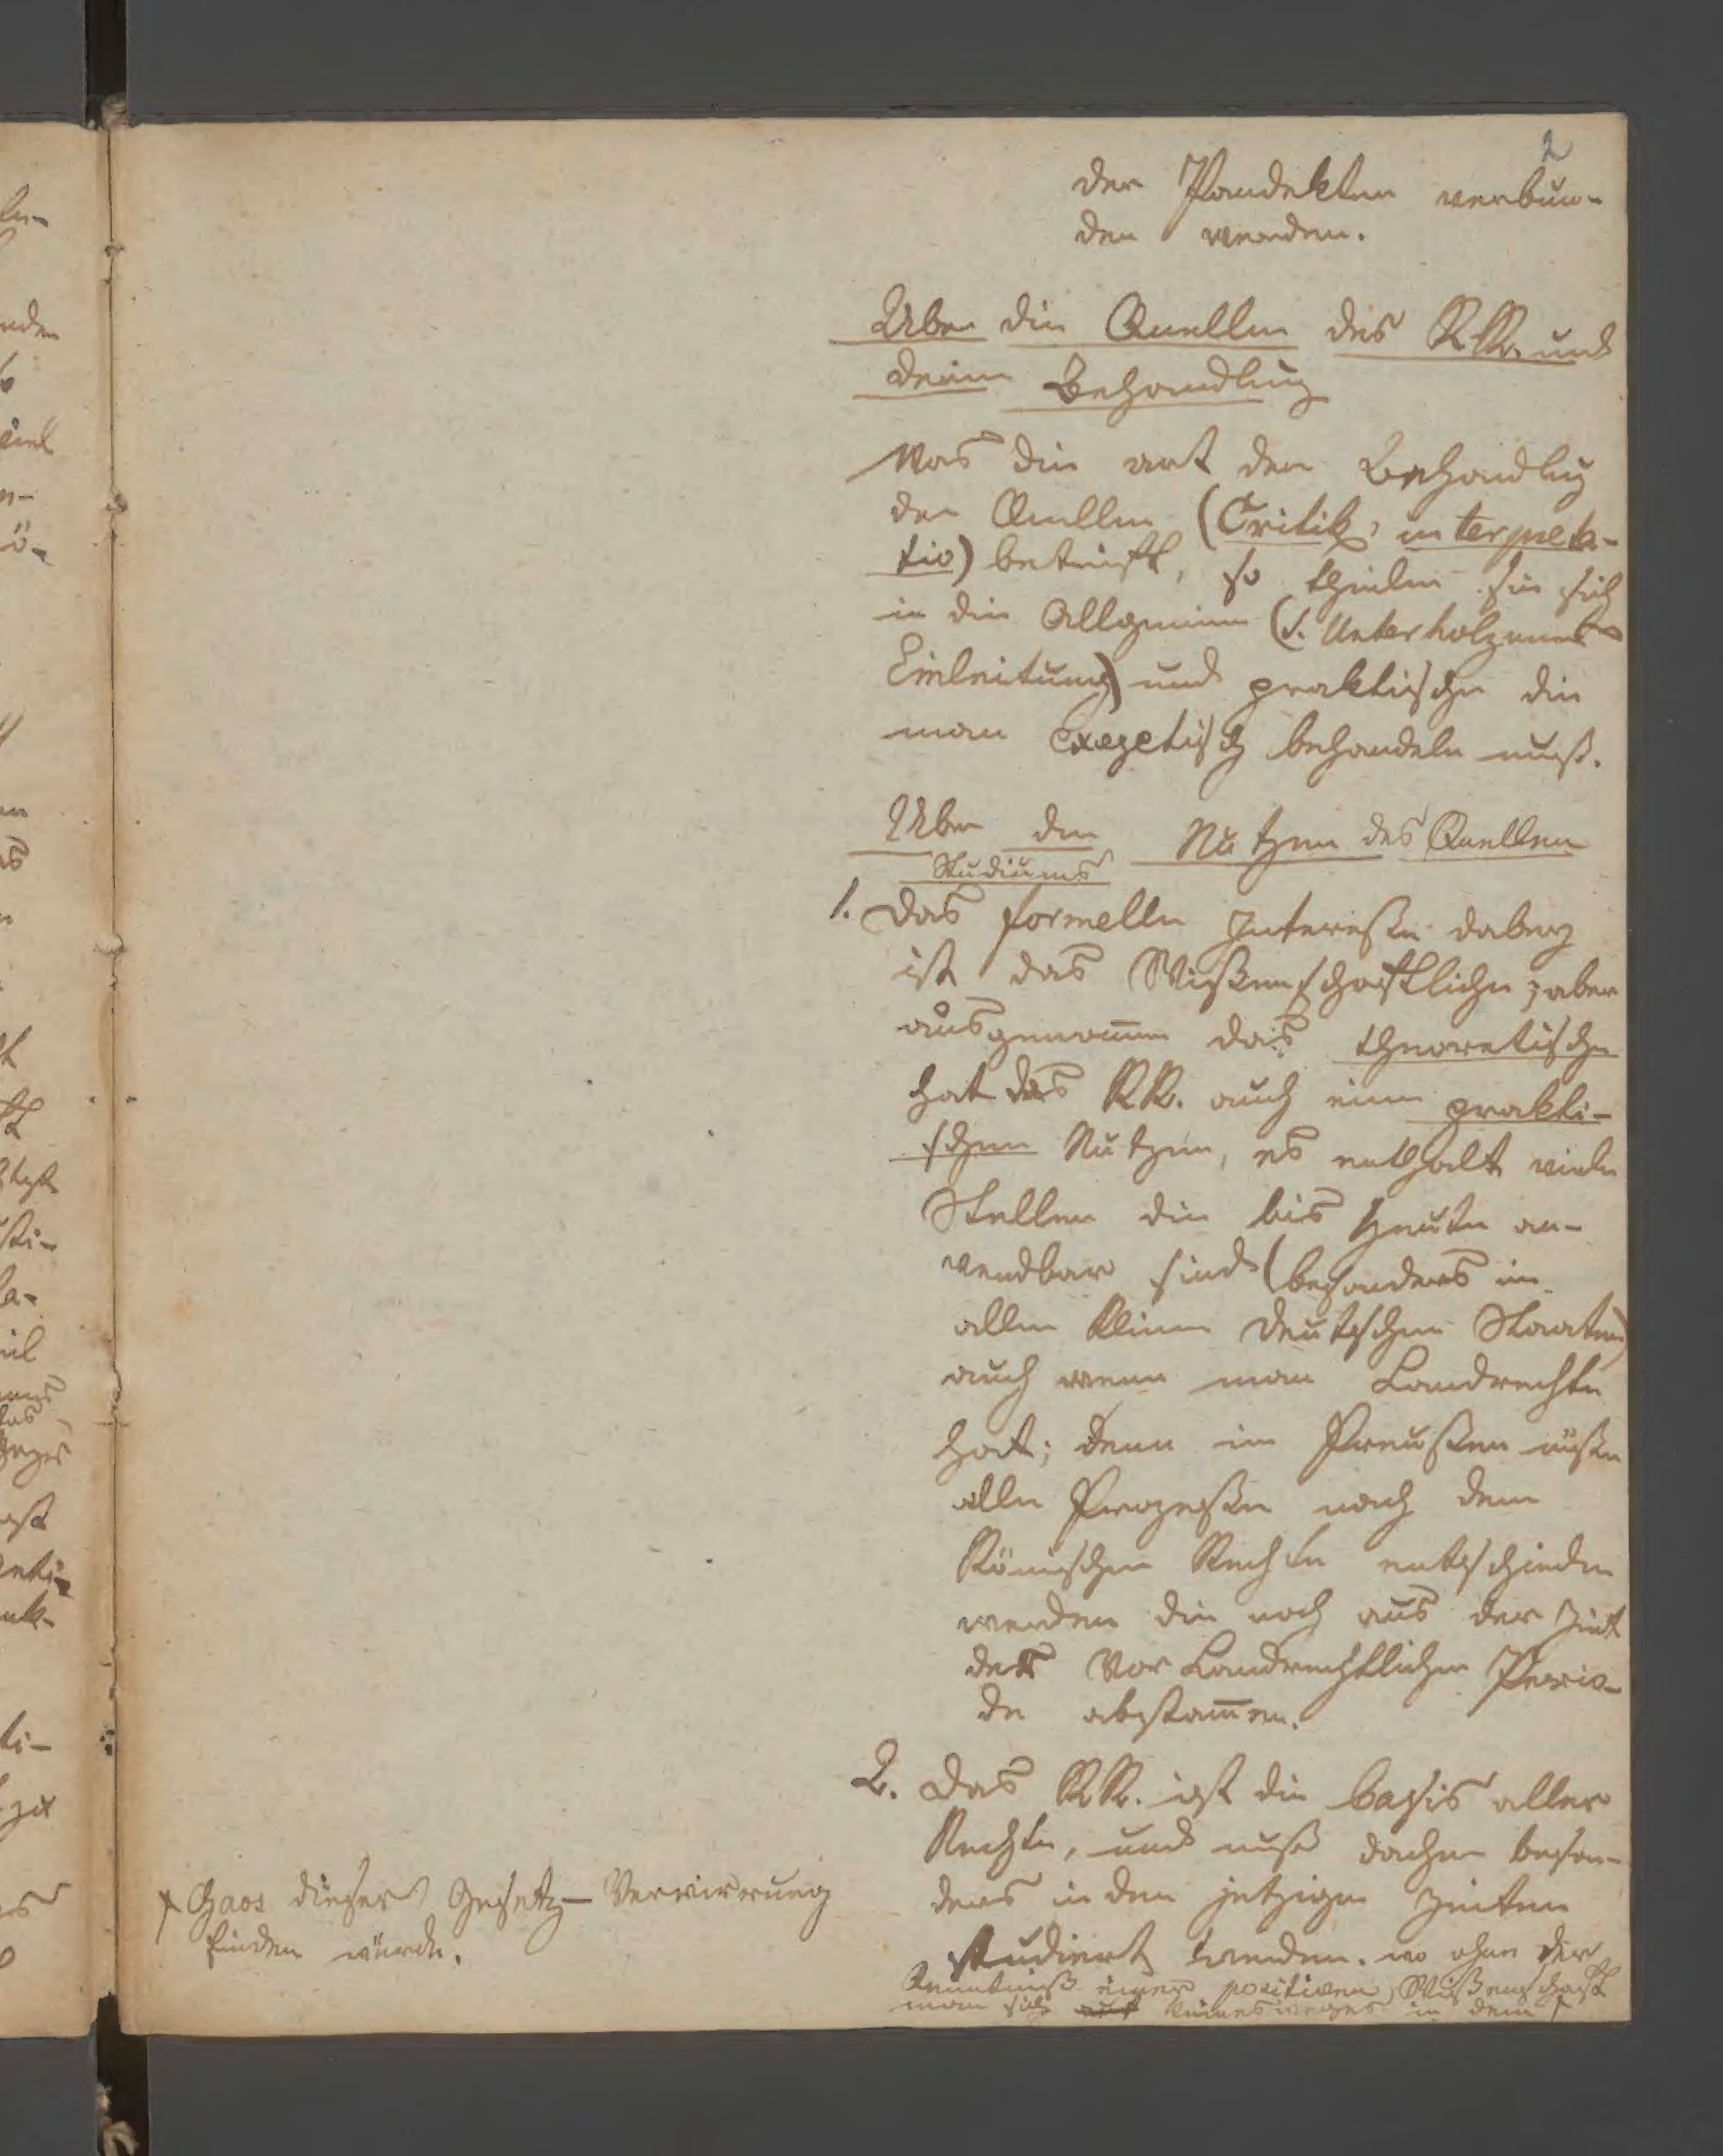 2
der Pandekten verbun-
den werden.
Über die Quellen des RR. und
deren Behandlung
Was die art der Behandlug
der Quellen (Critik, interpreta-
tio) betrifft, so theilen sie sich
in die Allgemeine (s. Unterholzners
Einleitung) und praktische die
man exegetisch behandeln muß.
Über den Nutzen des Quellen
Studiums
1. Das formelle Intereße dabey
ist das Wißenschaftliche; aber
ausgenom̄en das theoretische
hat das RR. auch einen prakti-
schen Nutzen, es enthalt viele
Stellen die bis heute an-
wendbar sind (besonders in
allen kleinen deutschen Staaten)
auch wenn man Landrechte
hat; denn in Preußen müßen
alle Prozeße nach dem
Römischen Rechte entschieden
werden die noch aus der Zeit
der Vor Landrechtlichen Perio-
de abstam̄en.
2. Das RR. ist die basis aller
Rechte, und muß daher beson-
ders in den jetzigen Zeiten
studiert werden. wo ohne der
Kenntniß einer positiven Wißenschaft
man sich auf keinesweges in dem +
+ Chaos dieser Gesetz-Verwirrung
finden würde.